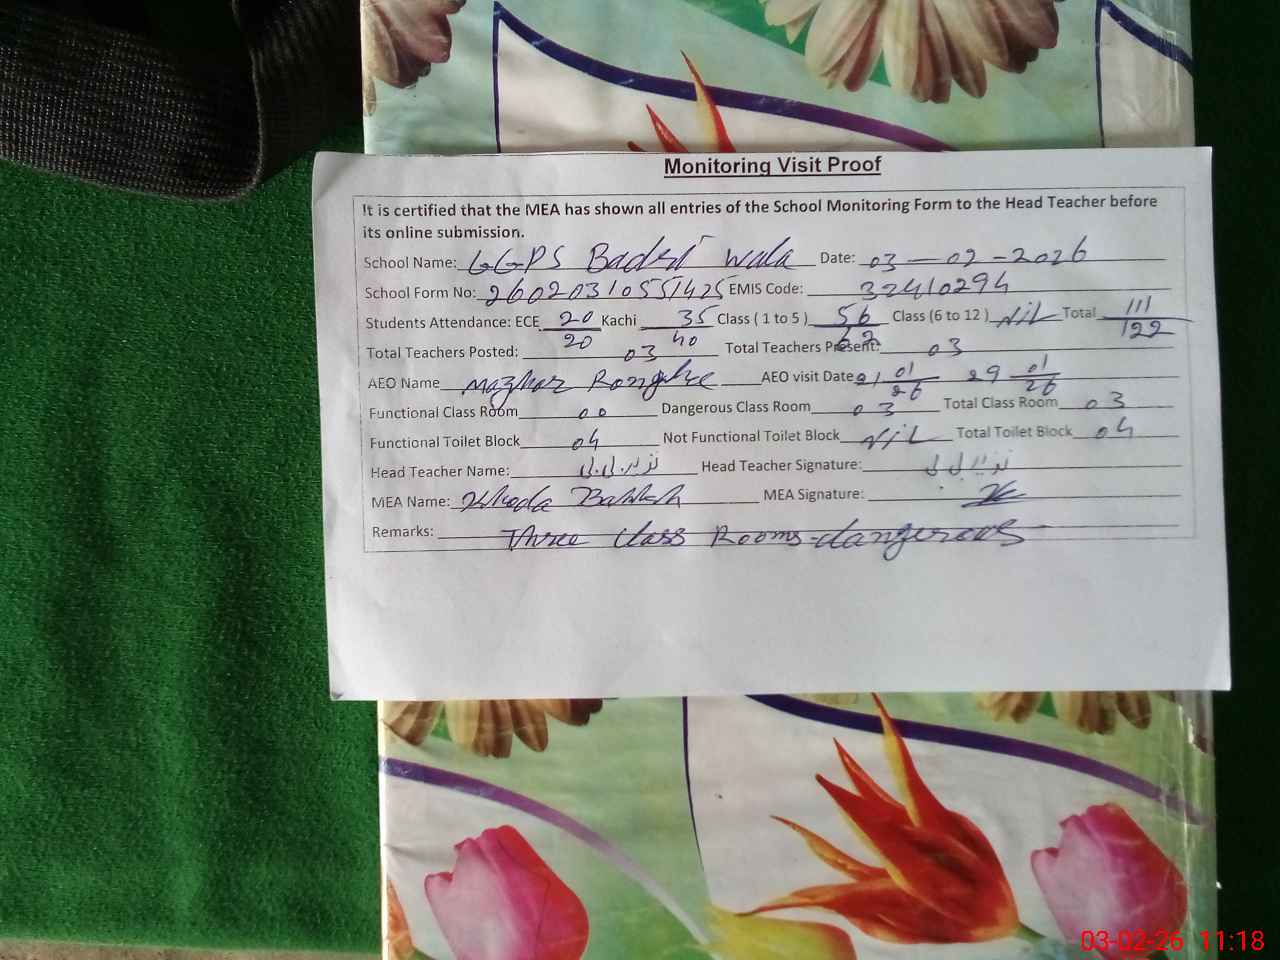 Monitoring Visit Proof
It is certified that the MEA has shown all entries of the School Monitoring Form to the Head Teacher before
its online submission.
School Name: GGPS Badri Wala Date: 03-02-2026
School Form No: 26020310551425 EMIS Code: 32410294
Students Attendance: ECE 20/20 Kachi 35/40 Class ( 1 to 5 ) 56/62 Class (6 to 12 ) Nil Total 111/122
Total Teachers Posted: 03 Total Teachers Present: 03
AEO Name Mazhar AEO visit Date 21/01/26 29/01/26
Functional Class Room 00 Dangerous Class Room 03 Total Class Room 03
Functional Toilet Block 04 Not Functional Toilet Block Nil Total Toilet Block 04
Head Teacher Name: Head Teacher Signature:
MEA Name: Khuda Bakhsh MEA Signature:
Remarks: Three class Rooms dangerous
03-02-26 11:18